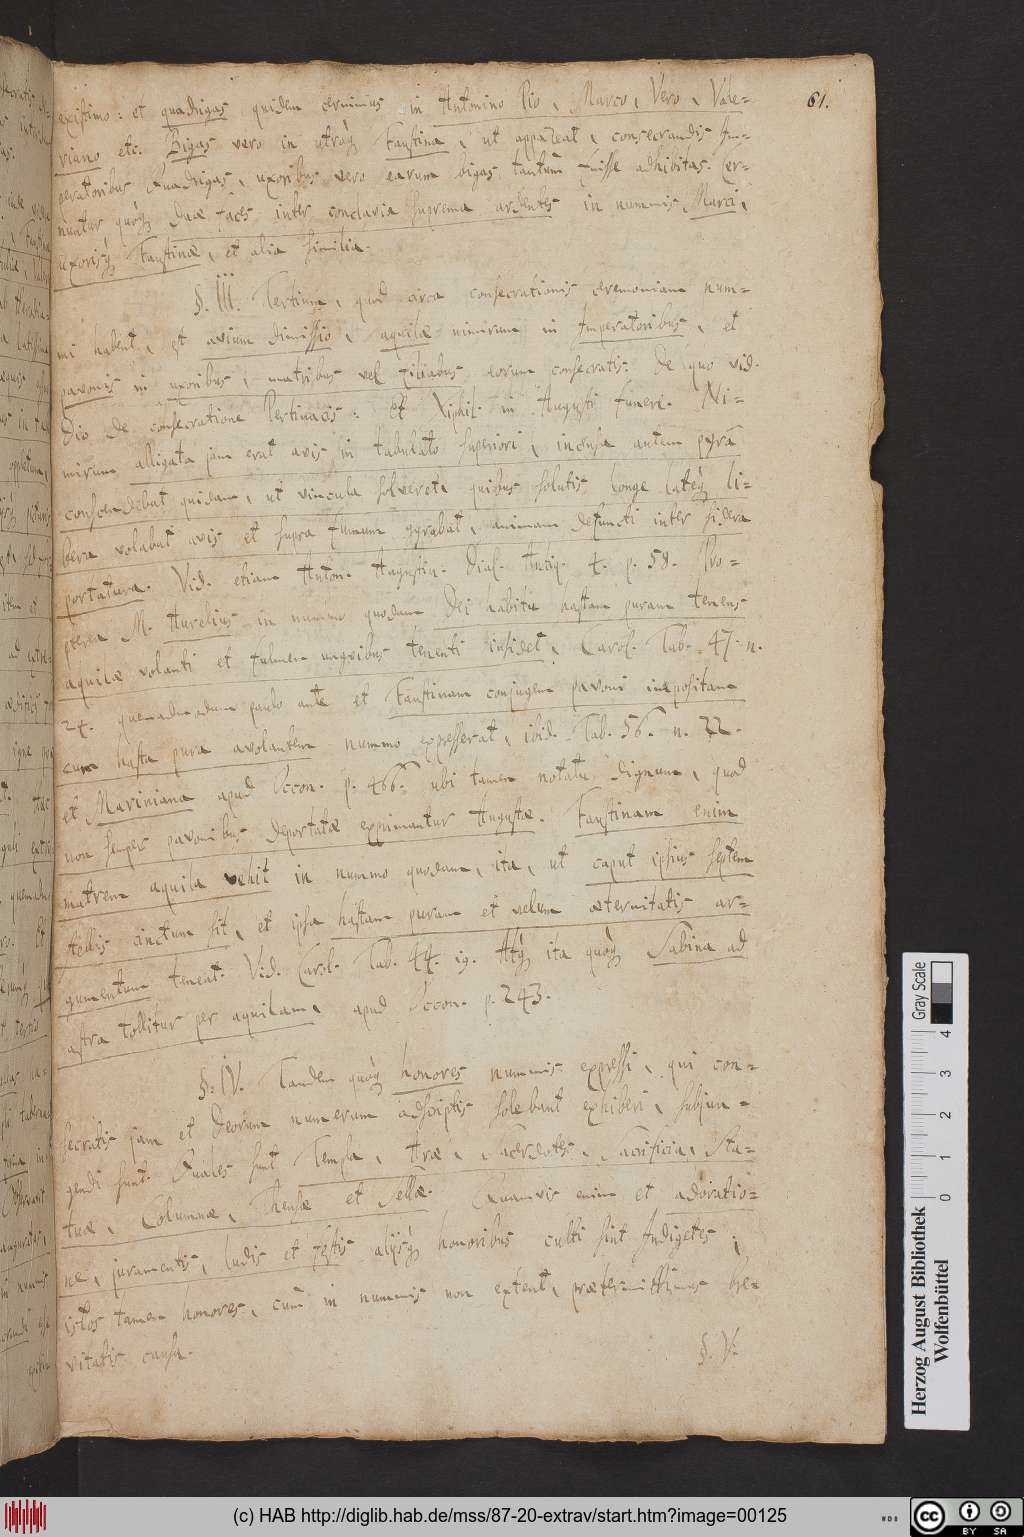 61.
existimo: et quadrigas quidem cernimus in Antonino Pio, Marco, Vero, Vale=
riano etc. Bigas vero in utraq; Faustina, ut appareat, consecrandis Im=
peratoribus Quadrigas, uxoribus vero earum bigas tantum fuisse adhibitas. Cer=
nuntur quoq; duæ faces inter conclavia suprema ardentes in nummis Marci,
uxorisq; Faustinæ, et alia similia.
§. III. Tertium, quod circa consecrationis ceremoniam num=
mi habent, est avium dimissio, aquilæ nimirum in Imperatoribus, et
pavonis in uxoribus, matribus vel filiabus eorum consecratis. De quo vid.
Dio de consecratione Pertinacis: et Xiphil. in Augusti funere. Ni=
mirum alligata jam erat avis in tabulato superiori, incensa autem pyra
conscendebat quidam, ut vincula solveret, quibus solutis longe lateq; li=
bera volabat avis et supra fumum gyrabat, animam defuncti inter sidera
portatura. Vid. etiam Anton. Augustin. Dial. Antiq. 4. p. 58. Pro=
pterea M. Aurelius in nummo quodam Dei habitu hastam puram tenens
aquilæ volanti et fulmen unguibus tenenti insidet, Carol. Tab. 47. n.
24. quemadmodum paulo ante et Faustinam conjugem pavoni impositam
cum hasta pura avolantem nummo expresserat, ibid. Tab. 56. n. 22.
et Mariniana apud Occon. p. 466. ubi tamen notatu dignum, quod
non semper pavonibus deportatæ exprimantur Augustæ. Faustinam enim
matrem aquila vehit in nummo quodam, ita, ut caput ipsius septem
stellis cinctum sit, et ipsa hastam puram et velum æternitatis ar=
gumentum teneat. Vid. Carol. Tab. 44. 19. Atq; ita quoq; Sabina ad
astra tollitur per aquilam, apud Occon. p. 243.
§. IV. Tandem quoq; honores nummis expressi, qui con=
secratis jam et Deorum numerum adscriptis solebant exhiberi, subjun=
gendi sunt. Quales sunt Templa, Aræ, Sacerdotes, Sacrificia, Sta=
tuæ, Columnæ, Thensæ et Sellæ. Quamvis enim et adoratio=
ne, juramentis, ludis et festis alijsq; honoribus culti sint Indigetes;
istos tamen honores, cum in nummis non extent, prætermittimus bre=
vitatis causa.
§. V.
Herzog August Bibliothek
Wolfenbüttel
Gray Scale
0 1 2 3 4
(c) HAB http://diglib.hab.de/mss/87-20-extrav/start.htm?image=00125
cc BY SA